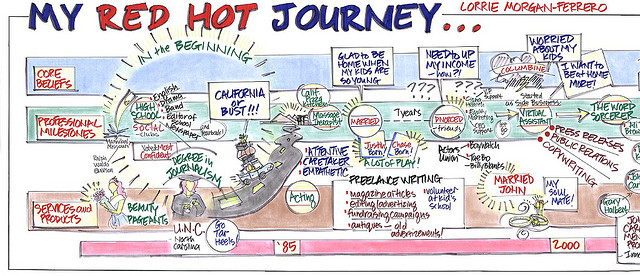 MY RED HOT JOURNEY...
LORRIE MORGAN-FERRERO
in the BEGINNING
CORE
BELIEFS
PROFESSIONAL
MILESTONES
SERVICES and
PRODUCTS
HIGH
SCHOOL
SOCIAL
CLUBS
English
Drama
Band
Editor of
School
Newspaper
Voted Most
Confident
Ralph
Waldo
Emerson
BEAUTY
PAGEANTS
DEGREE in
JOURNALISM
U.N.C.
North
Carolina
Go
Tar
Heels
CALIFORNIA
or
BUST!!!
Massage
Therapist
ATTENTIVE
CARETAKER
EMPATHETIC
Acting
'85
GLAD to BE
HOME WHEN
MY KIDS ARE
SO YOUNG
MARRIED
7 years
Justin
Born!
Chase
Born!
A LOT of PLAY!
FREELANCE WRITING
magazine articles
editing/advertizing
fundraising campaigns
antiques - old
advertizements!
volunteer
at kid's
school
NEED to UP
MY INCOME
- how?!
???
???
DIVORCED
Actors
Union
Baywatch
Tae Bo
Billy Blanks
MARRIED
JOHN
MY
SOUL
MATE!
COLUMBINE
WORRIED
ABOUT MY
KIDS
I WANT to
BE at HOME
MORE!
Started
as Side Business
VIRTUAL
ASSISTANT
THE WORD
SORCERER
PRESS RELEASES
PUBLIC RELATIONS
COPYWRITING
Gary
Halbert
2000